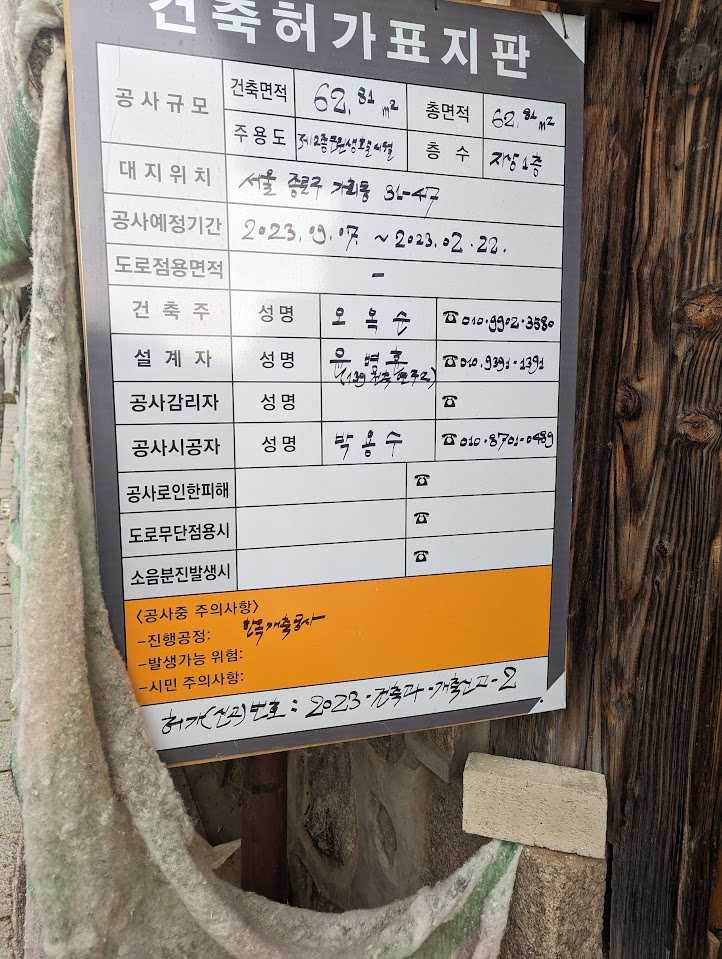 건축허가표지판
공사규모 건축면적 62.81 m² 총면적 62.81 m²
주용도 제2종근린생활시설 층수 지상1층
대지위치 서울 종로구 가회동 31-47
공사예정기간 2023.09.07. ~ 2023.02.22.
도로점용면적 -
건축주 성명 오옥순 ☎010.9902.3580
설계자 성명 윤병훈 ☎010.9391-1391
공사감리자 성명 ☎
공사시공자 성명 박용수 ☎010-8701-0489
공사로인한피해 ☎
도로무단점용시 ☎
소음분진발생시 ☎
<공사중 주의사항>
-진행공정: 한옥개축공사
-발생가능 위험:
-시민 주의사항:
허가(신고)번호 : 2023-건축과-개축신고-2